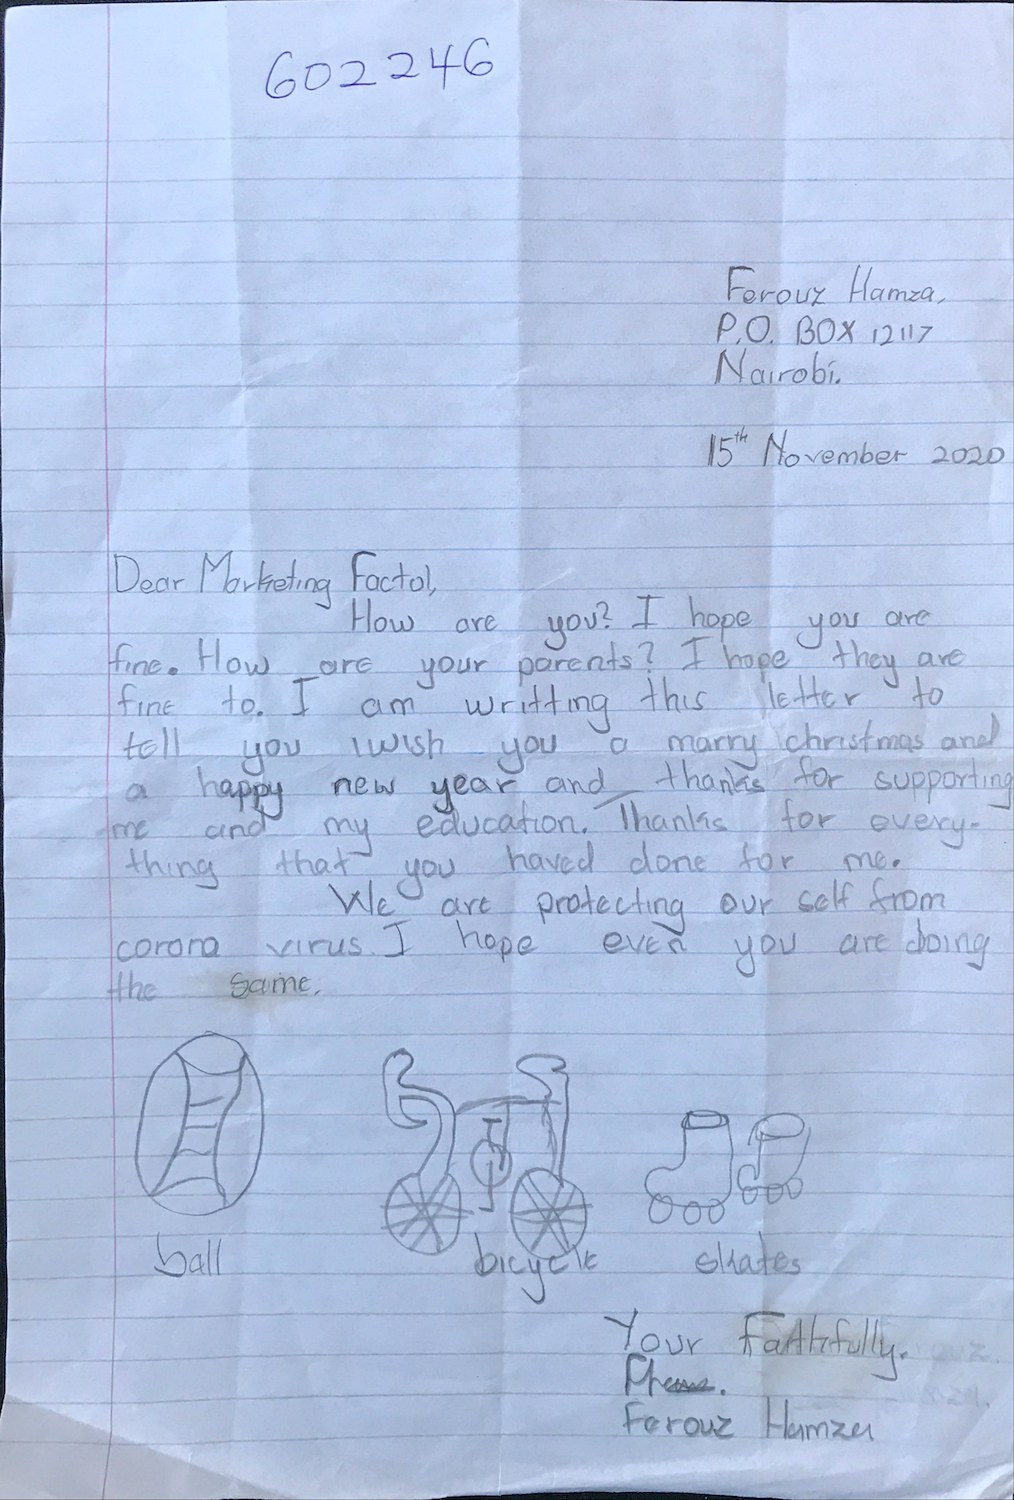 602246
Ferouz Hamza,
P.O. BOX 12117
Nairobi.
15th November 2020
Dear Marketing Factol,
How are you? I hope you are
fine. How are your parents? I hope they are
fine to. I am writting this letter to
tell you iwish you a marry christmas and
a happy new year and thanks for supporting
me and my education. Thanks for every-
thing that you haved done for me.
We are protecting our self from
corona virus. I hope even you are doing
the same.
ball bicycle skates
Your Faithfully.
Ferouz Hamza